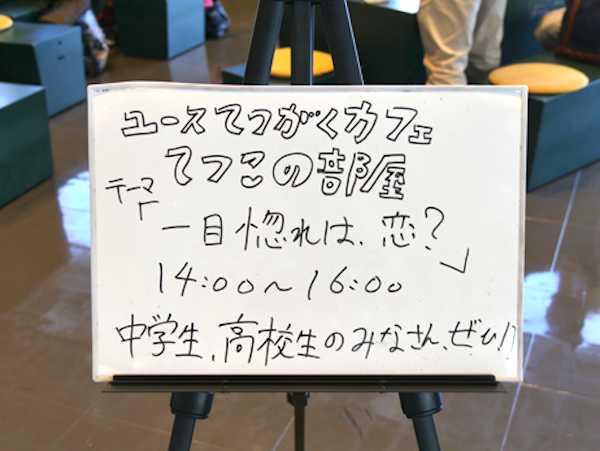 ユースてつがくカフェ
てつこの部屋
テーマ
「一目惚れは、恋?」
14:00〜16:00
中学生、高校生のみなさん、ぜひ!?